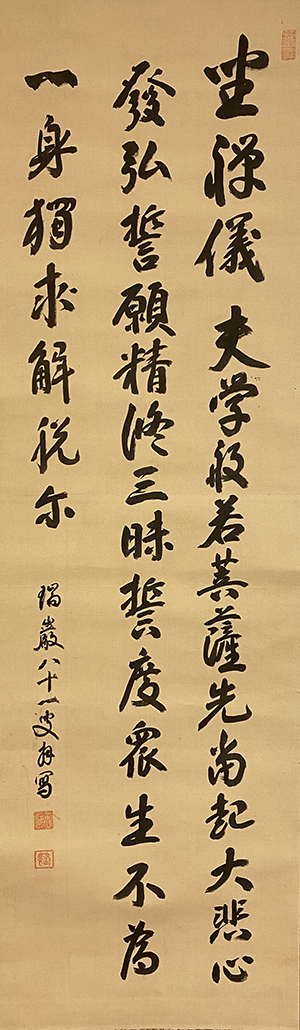 坐禅儀 夫学般若菩薩先當起大悲心
發弘誓願精修三昧誓度衆生不為
一身獨求解脱尓
瑞巌八十一叟拜寫